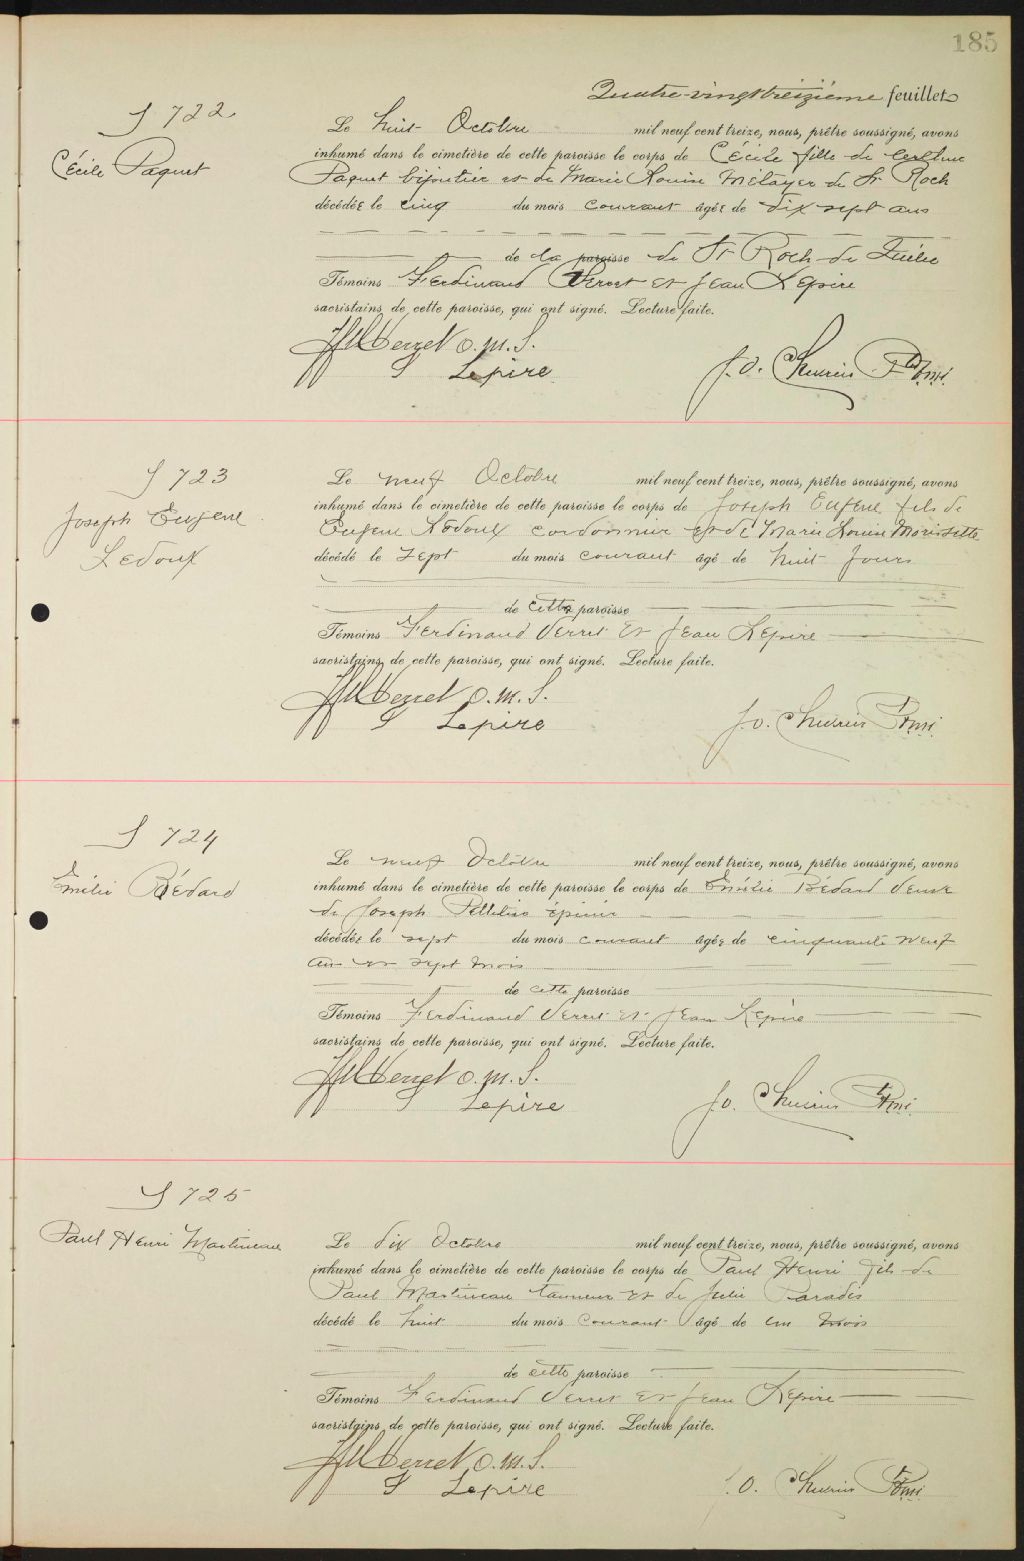 185
Quatre-vingt treizième feuillet
S 722
Cécile Paquet
Le huit Octobre mil neuf cent treize, nous, prêtre soussigné, avons
inhumé dans le cimetière de cette paroisse le corps de Cécile fille de
Paquet bijoutier et de Marie Louise Métayer de St Roch
décédée le cinq du mois courant âgée de dix sept ans
de la paroisse de St Roch de Québec
Témoins Ferdinand Verret et Jean Lepire
sacristains de cette paroisse, qui ont signé. Lecture faite.
Verret O.M.S.
J Lepire
J. O.
S 723
Joseph Eugene
Ledoux
Le neuf Octobre mil neuf cent treize, nous, prêtre soussigné, avons
inhumé dans le cimetière de cette paroisse le corps de Joseph Eugene fils de
Eugene Ledoux cordonnier et de Marie Louise Morissette
décédé le sept du mois courant âgé de huit jours
de cette paroisse
Témoins Ferdinand Verret et Jean Lepire
sacristains de cette paroisse, qui ont signé. Lecture faite.
Verret O.M.S.
J Lepire
J. O.
S 724
Émélie Bédard
Le neuf Octobre mil neuf cent treize, nous, prêtre soussigné, avons
inhumé dans le cimetière de cette paroisse le corps de Émélie Bédard veuve
de Joseph Pelletier épicier
décédée le sept du mois courant âgée de cinquante neuf
ans et sept mois
de cette paroisse
Témoins Ferdinand Verret et Jean Lepire
sacristains de cette paroisse, qui ont signé. Lecture faite.
Verret O.M.S.
J Lepire
J. O.
S 725
Paul Henri Martineau
Le dix Octobre mil neuf cent treize, nous, prêtre soussigné, avons
inhumé dans le cimetière de cette paroisse le corps de Paul Henri fils de
Paul Martineau tanneur et de Julie Paradis
décédé le huit du mois courant âgé de un mois
de cette paroisse
Témoins Ferdinand Verret et Jean Lepire
sacristains de cette paroisse, qui ont signé. Lecture faite.
Verret O.M.S.
J Lepire
J. O.